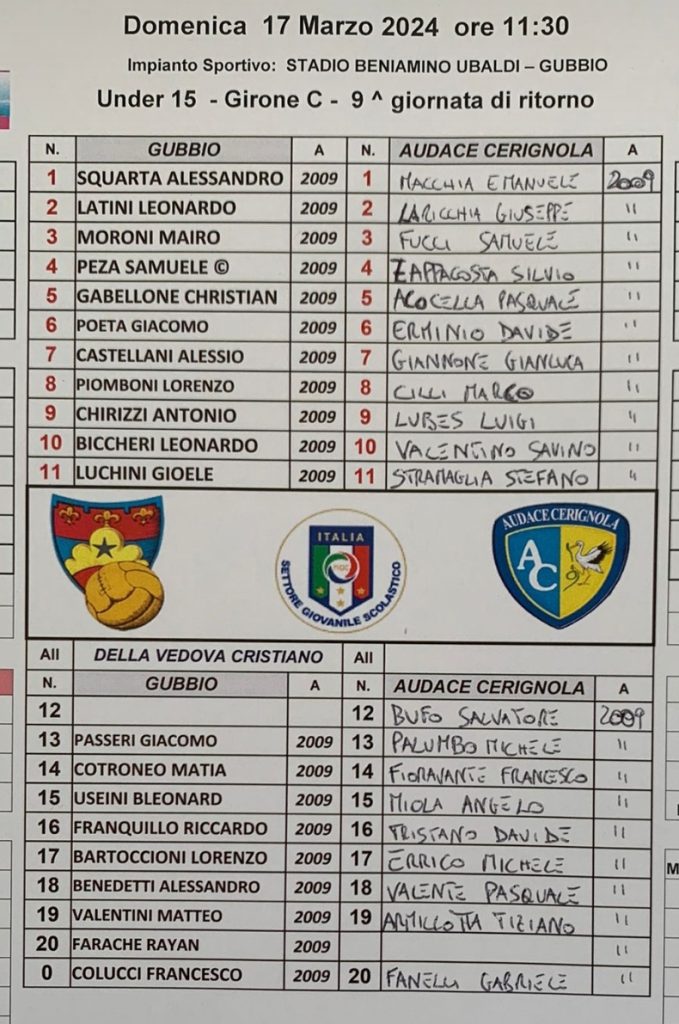 Domenica 17 Marzo 2024 ore 11:30
Impianto Sportivo: STADIO BENIAMINO UBALDI – GUBBIO
Under 15 - Girone C - 9 ^ giornata di ritorno
N. GUBBIO A N. AUDACE CERIGNOLA A
1 SQUARTA ALESSANDRO 2009 1 MACCHIA EMANUELE 2009
2 LATINI LEONARDO 2009 2 LARICCHIA GIUSEPPE "
3 MORONI MAIRO 2009 3 FUCCI SAMUELE "
4 PEZA SAMUELE © 2009 4 ZAPPACOSTA SILVIO "
5 GABELLONE CHRISTIAN 2009 5 ACOCELLA PASQUALE "
6 POETA GIACOMO 2009 6 ERMINIO DAVIDE "
7 CASTELLANI ALESSIO 2009 7 GIANNONE GIANLUCA "
8 PIOMBONI LORENZO 2009 8 CILLI MARCO "
9 CHIRIZZI ANTONIO 2009 9 LUBES LUIGI "
10 BICCHERI LEONARDO 2009 10 VALENTINO SAVINO "
11 LUCHINI GIOELE 2009 11 STRAMAGLIA STEFANO "
ITALIA
FIGC
SETTORE GIOVANILE SCOLASTICO
AUDACE CERIGNOLA
AC
All DELLA VEDOVA CRISTIANO All
N. GUBBIO A N. AUDACE CERIGNOLA A
12 12 BUFO SALVATORE 2009
13 PASSERI GIACOMO 2009 13 PALUMBO MICHELE "
14 COTRONEO MATIA 2009 14 FIORAVANTE FRANCESCO "
15 USEINI BLEONARD 2009 15 MIOLA ANGELO "
16 FRANQUILLO RICCARDO 2009 16 TRISTANO DAVIDE "
17 BARTOCCIONI LORENZO 2009 17 ERRICO MICHELE "
18 BENEDETTI ALESSANDRO 2009 18 VALENTE PASQUALE "
19 VALENTINI MATTEO 2009 19 ARMILLOTTA TIZIANO "
20 FARACHE RAYAN 2009 "
0 COLUCCI FRANCESCO 2009 20 FANELLI GABRIELE "
M